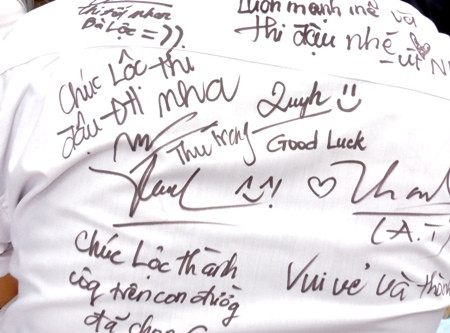 thi tốt nhen
Bà Lộc =))
Luôn mạnh mẽ và
thi đậu nhé
Chúc Lộc thi
đậu ĐH nha
Quyh
Thu Trang
Good Luck
^^!
(A.T)
Chúc Lộc thành
côg trên con đường
đã chọn
Vui vẻ và thàn